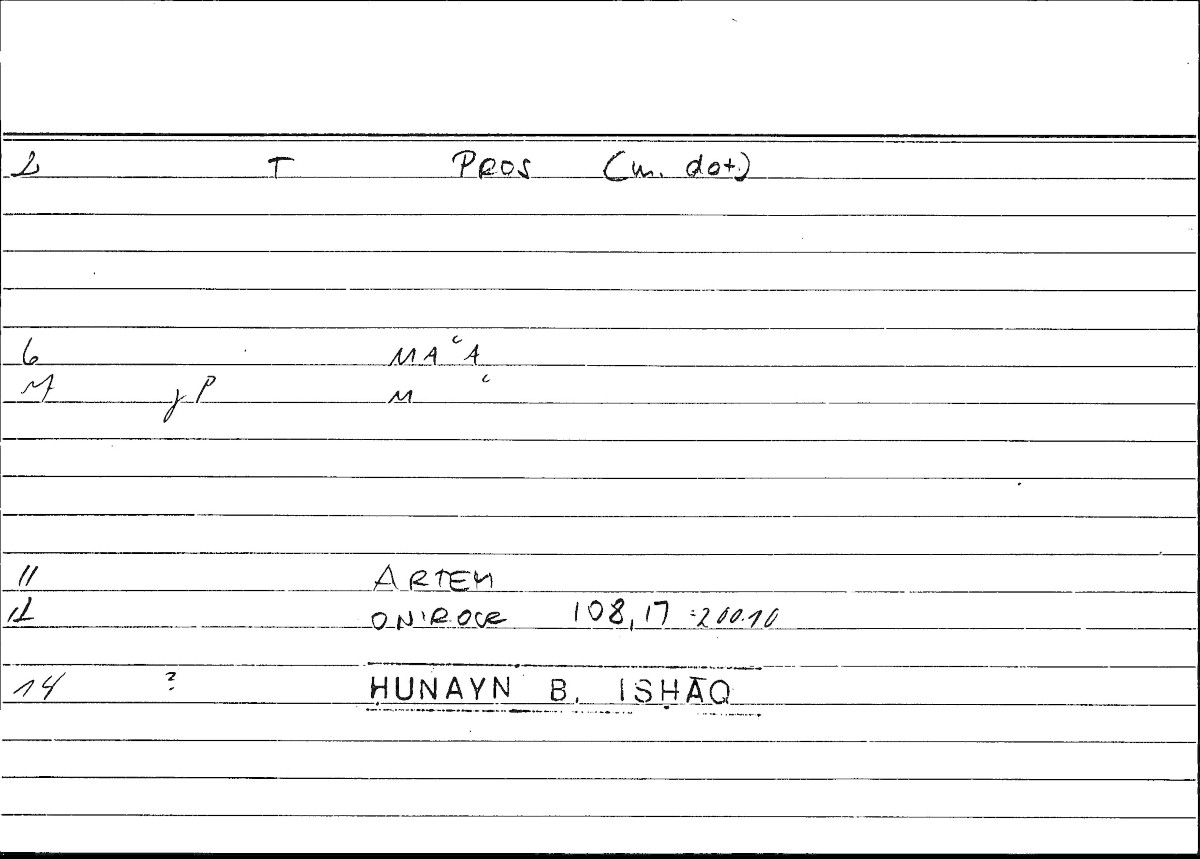 2 T PROS (m. dat.)
6 MAʿA
M γP M ʿ
11 ARTEM
12 ONIROCR 108,17 =200.10
14 ? ḤUNAYN B. ISḤĀQ